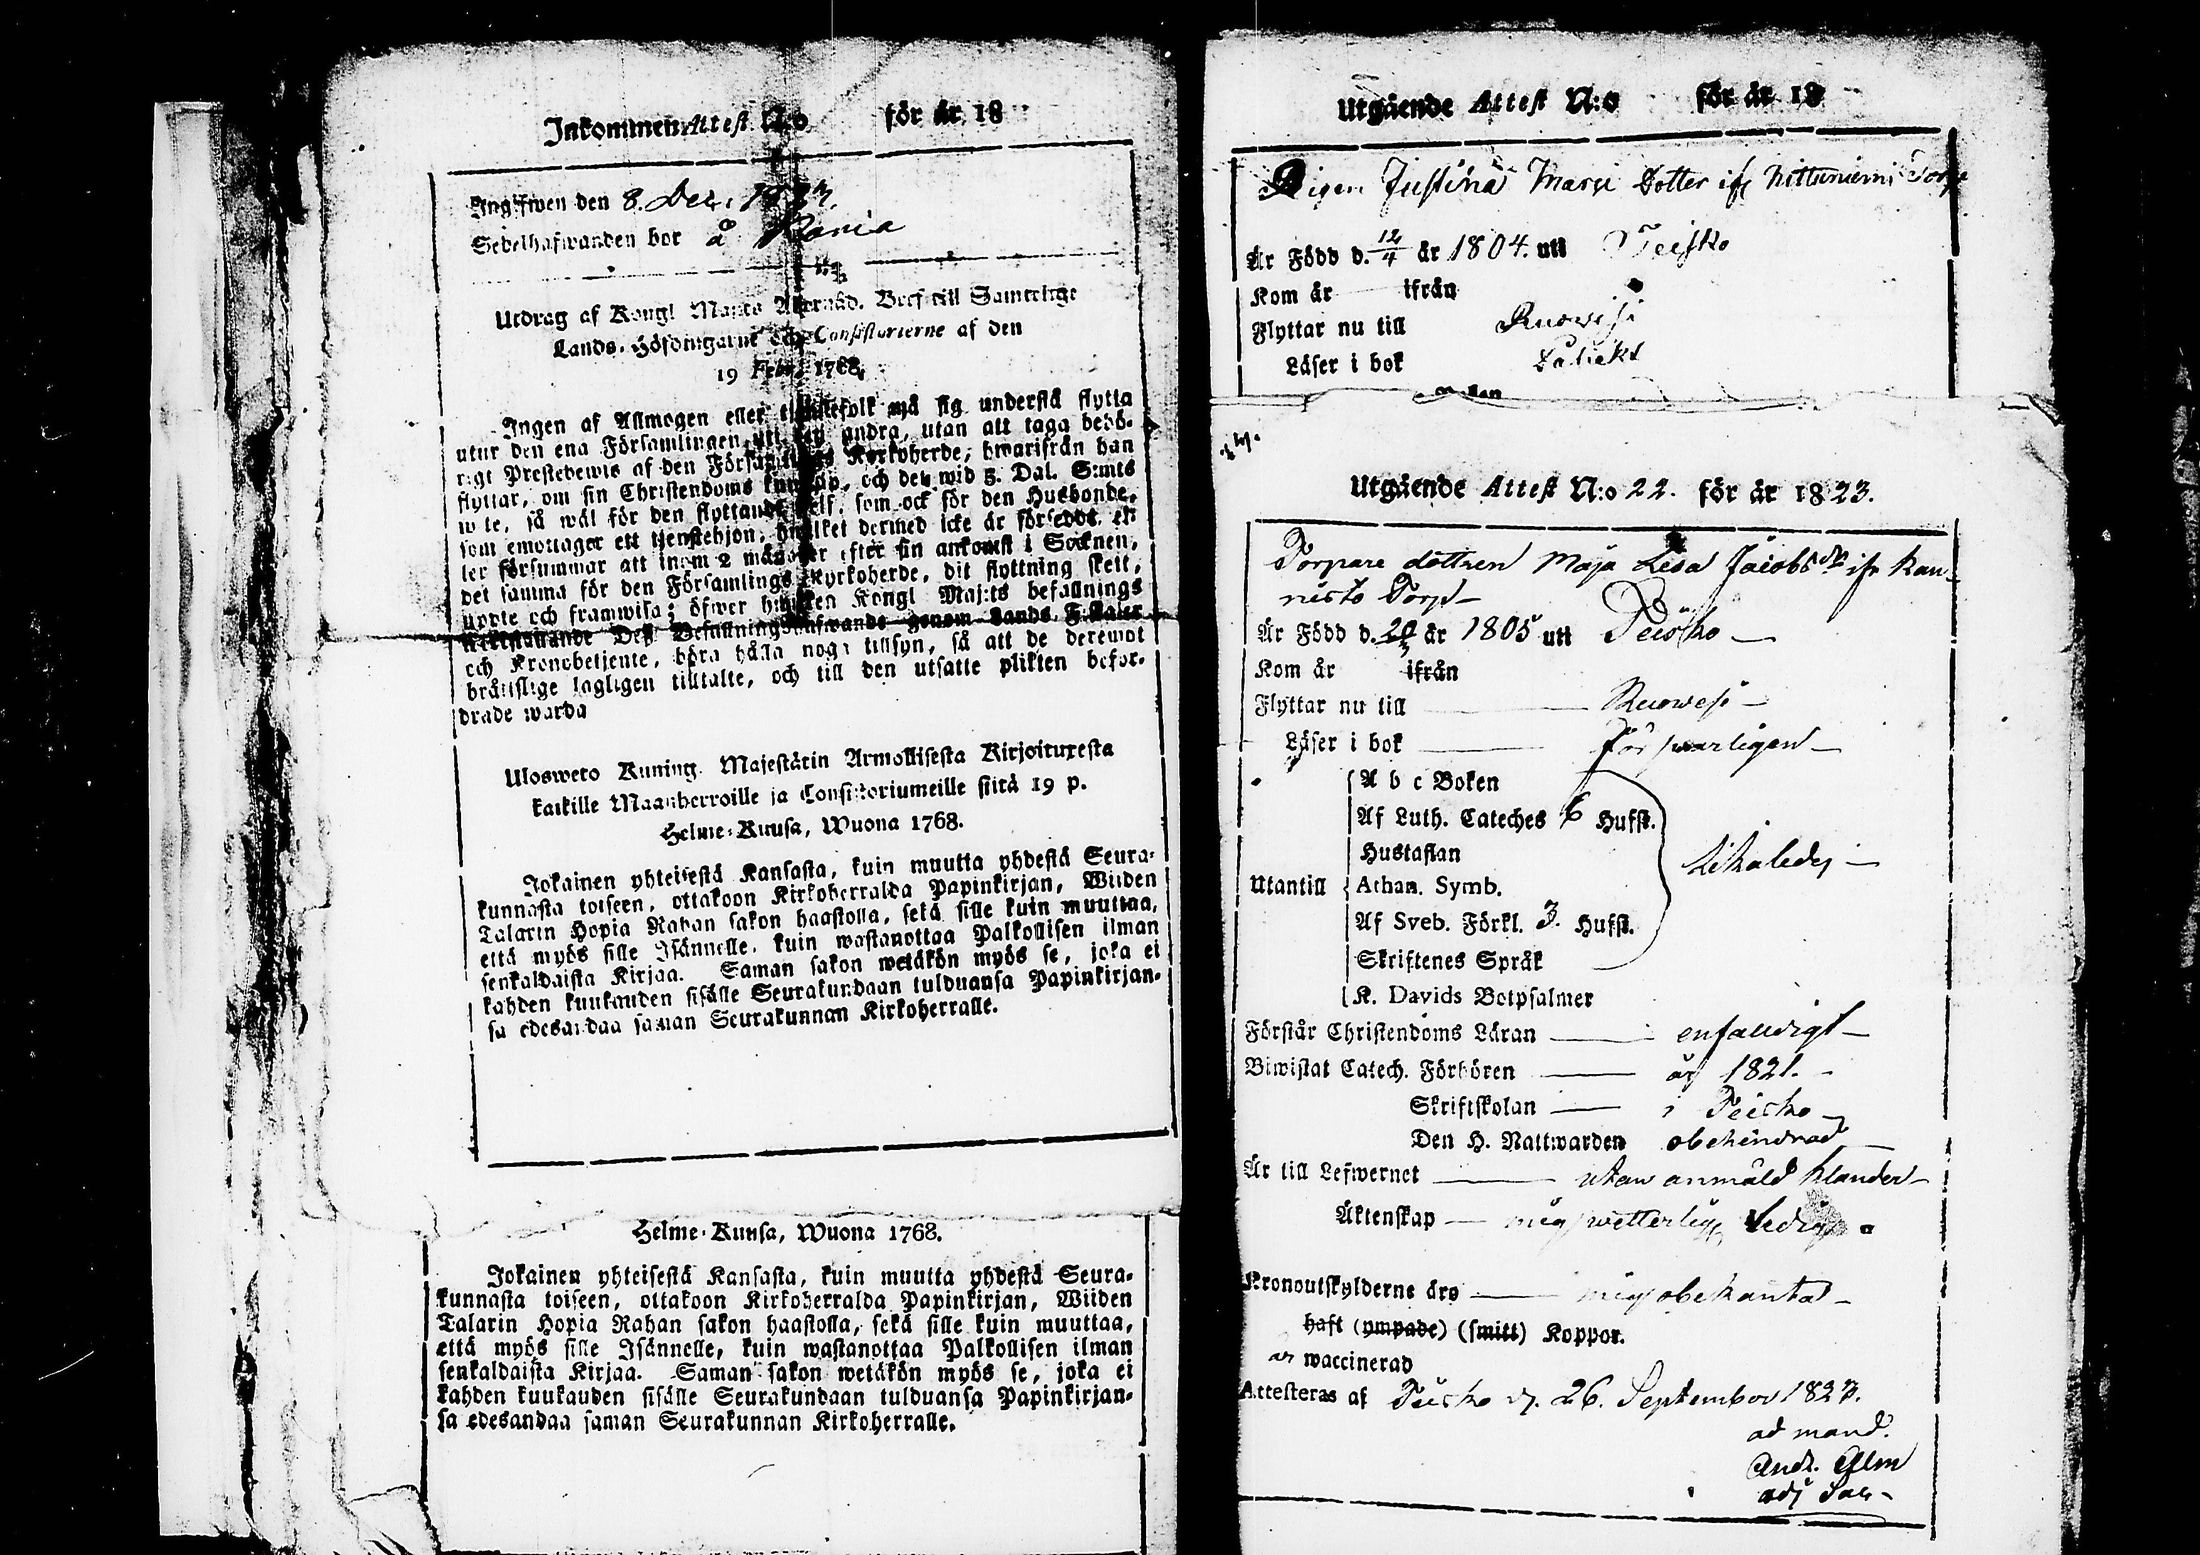 Inkommen Attest N:o för år 18
Ingifwen den 8. Dec. 1823.
Sedelhafwanden bor å Rania
Utdrag af Kongl Maj:ts Allernåd. Bref till Samtelige
Lands-Höfdingarne och Consistorierne af den
19 Febr. 1768.
Ingen af Allmogen eller tjenstefolk må sig understå flytta
utur den ena Församlingen uti den andra, utan att taga behö-
rigt Prestebewis af den Församlings Kyrkoherde, hwarifrån han
flyttar, om sin Christendoms kunskap, och det wid 5. Dal. S:mts
wite, så wäl för den flyttande self, som ock för den Husbonde,
som emottager ett tjenstehjon, hwilket dermed icke är försedt, el-
ler försummar att inom 2 månader efter sin ankomst i Socknen,
det samma för den Församlings Kyrkoherde, dit flyttning skett,
uppte och framwisa; öfwer hwilken Kongl Maj:ts befallnings
Befallningshafwande genom Lands-Fiskaler
och Kronobetjente, böra hålla noga tillsyn, så att de deremot
bråttslige lagligen tilltalte, och till den utsatte plikten befor-
drade warda
Ulosweto Kuning. Majestätin Armollisesta Kirjoituxesta
kaikille Maanherroille ja Consistoriumeille siitä 19 p.
Helme-Kuusa, Wuona 1768.
Jokainen yhteisestä Kansasta, kuin muutta yhdestä Seura-
kunnasta toiseen, ottakoon Kirkoherralda Papinkirjan, Wiiden
Talarin Hopia Rahan sakon haastolla, sekä sille kuin muuttaa,
että myös sille Isännelle, kuin wastanottaa Palkollisen ilman
senkaldaista Kirjaa. Saman sakon wetäkön myös se, joka ei
kahden kuukauden sisälle Seurakundaan tulduansa Papinkirjan-
sa edesandaa saman Seurakunnan Kirkoherralle.
Helme-Kuusa, Wuona 1768.
Jokainen yhteisestä Kansasta, kuin muutta yhdestä Seura-
kunnasta toiseen, ottakoon Kirkoherralda Papinkirjan, Wiiden
Talarin Hopia Rahan sakon haastolla, sekä sille kuin muuttaa,
että myös sille Isännelle, kuin wastanottaa Palkollisen ilman
senkaldaista Kirjaa. Saman sakon wetäkön myös se, joka ei
kahden kuukauden sisälle Seurakundaan tulduansa Papinkirjan-
sa edesandaa saman Seurakunnan Kirkoherralle.
Utgående Attest N:o för år 18
Pigan Justina Marie Dotter ifr Nittuniemi Torp
Är Född d. 12/4 år 1804. uti Teisko
Kom år ifrån
Flyttar nu till Ruowesi
Läser i bok
Utgående Attest N:o 22. för år 1823.
Torpare dottren Maja Lisa Jacobsdr ifr Kan-
nisto Torp
Är Född d. 20/3 år 1805 uti Teisko
Kom år ifrån
Flyttar nu till Ruowesi
Läser i bok förswarligen
A b c Boken
Af Luth. Cateches 6 Hufst.
Hustaflan
Utantill Athan. Symb. likaledes
Af Sveb. Förkl. 3. Hufst.
Skriftenes Språk
K. Davids Botpsalmer
Förstår Christendoms Läran enfalldigt
Biwistat Catech. Förhören år 1821.
Skriftskolan i Teisko
Den H. Nattwarden obehindrad
Är till Lefwernet utan anmäld klander
Äktenskap mig wetterlig ledig
Kronoutskylderne äro mig obekanta
haft (ympade) (smitt) Koppor.
är waccinerad
Attesteras af Teisko d. 26. September 1823.
ad mand.
Andr. Alm
adj Sac